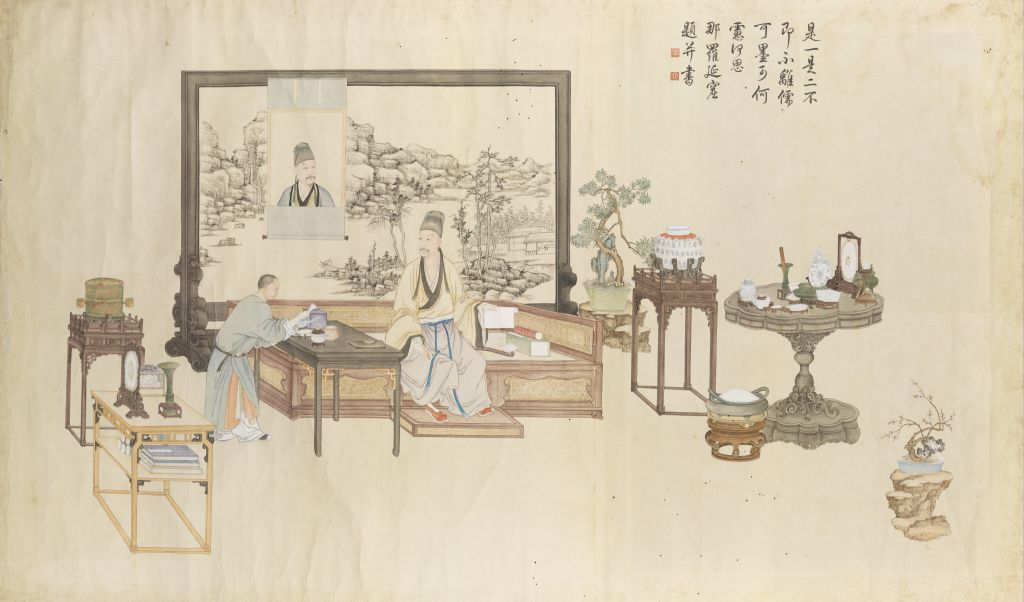 是一是二不
即不離儒
可墨可何
慮何思
那羅延窟
題并書